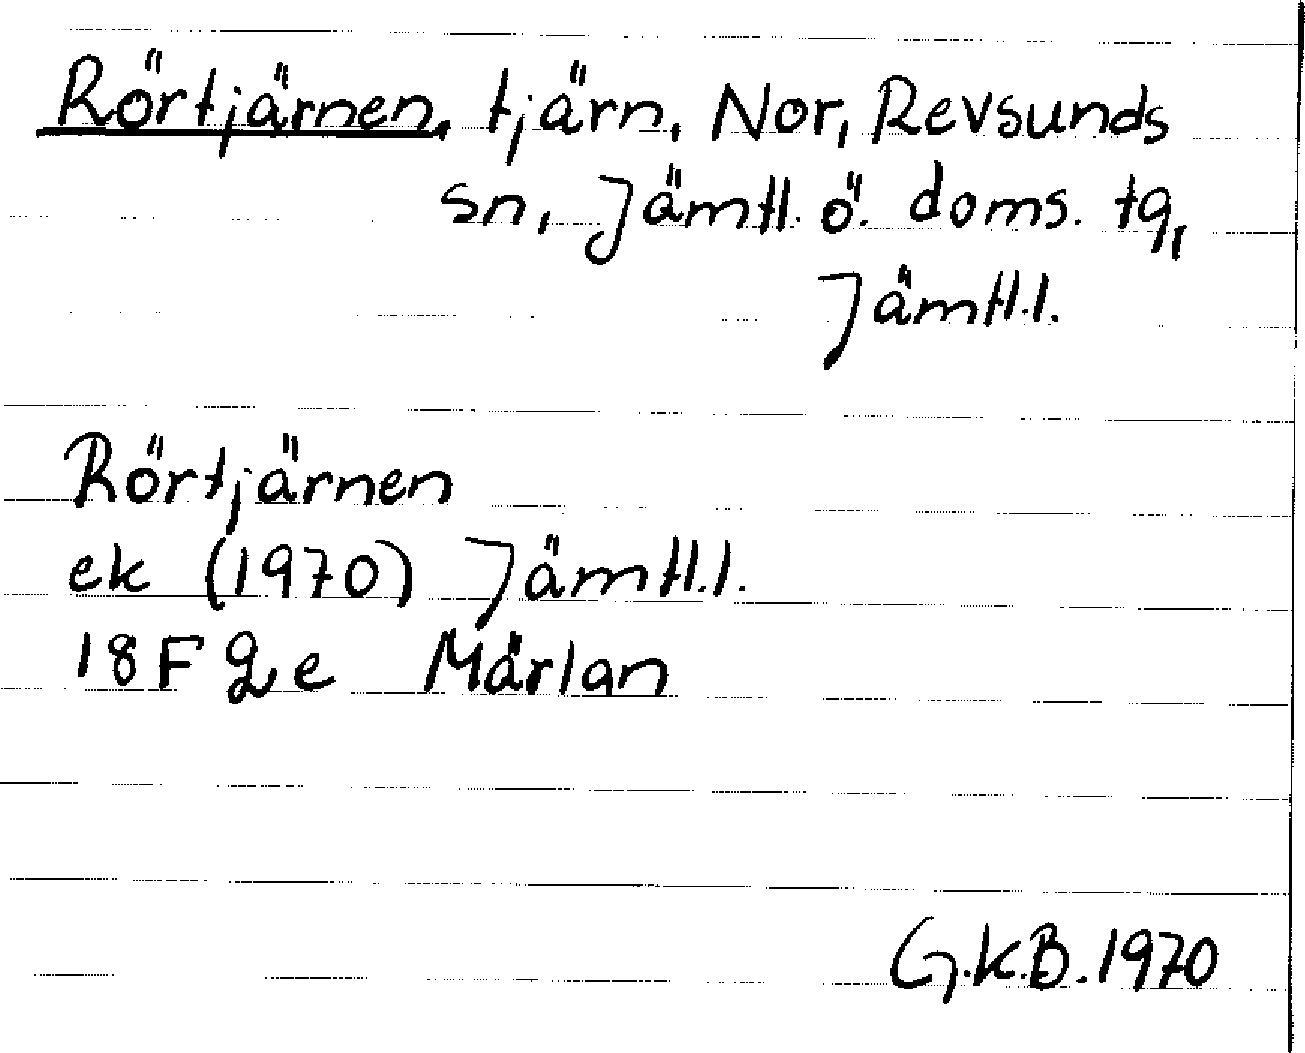 Rörtjärnen, tjärn, Nor, Revsunds
sn, Jämtl. ö. doms. tg,
Jämtl.l.
Rörtjärnen
ek (1970) Jämtl.l.
18F 2 e Märlan
G.K.B. 1970